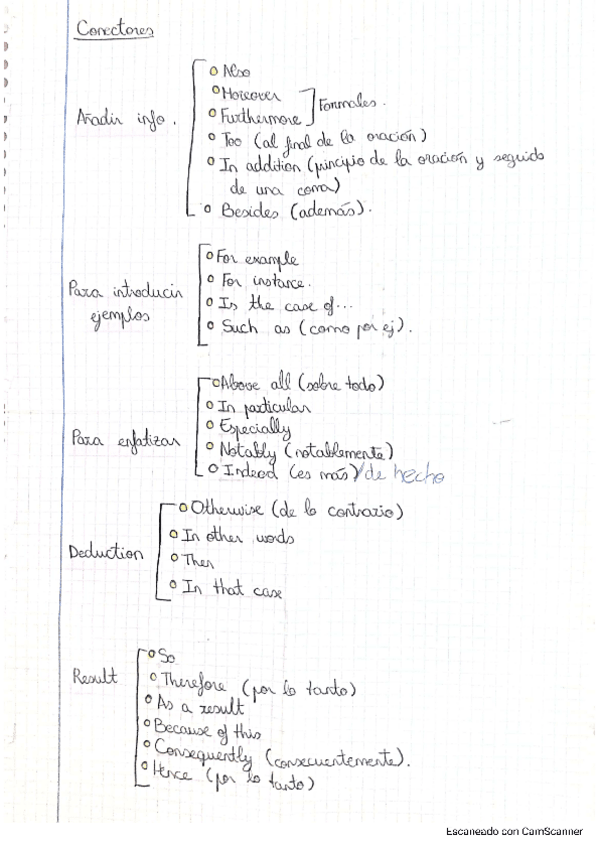 Conectores
Añadir info.
Also
Moreover
Furthermore
Formales.
Too (al final de la oración)
In addition (principio de la oración y seguido
de una coma)
Besides (además).
Para introducir
ejemplos
For example
For instance.
In the case of...
Such as (como por ej).
Para enfatizar
Above all (sobre todo)
In particular
Especially
Notably (notablemente)
Indeed (es más)/de hecho
Deduction
Otherwise (de lo contrario)
In other words
Then
In that case
Result
So
Therefore (por lo tanto)
As a result
Because of this
Consequently (consecuentemente).
Hence (por lo tanto)
Escaneado con CamScanner